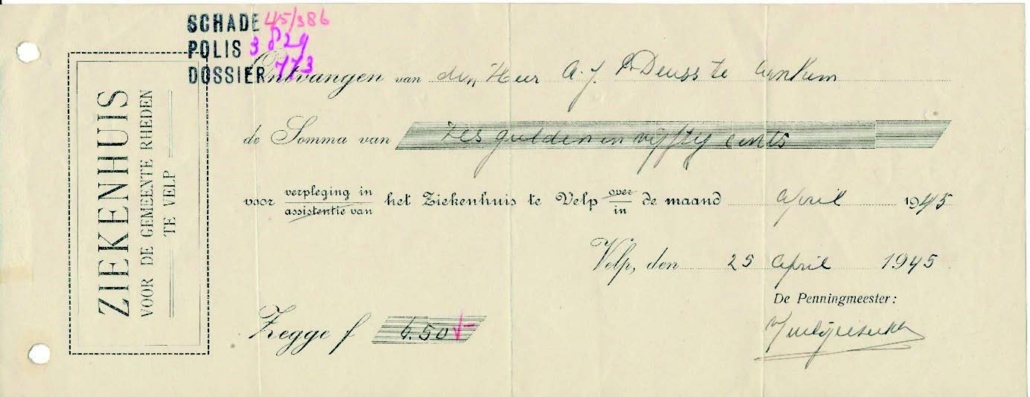 SCHADE 45/386
POLIS 3829
DOSSIER 773
ZIEKENHUIS
VOOR DE GEMEENTE RHEDEN
TE VELP
Ontvangen van den Heer A. J. Deuss te Arnhem
de Somma van Zes gulden en vijftig cents
voor verpleging in het Ziekenhuis te Velp over de maand april 1945
assistentie van in
Velp, den 25 april 1945
De Penningmeester:
Zegge f 6.50